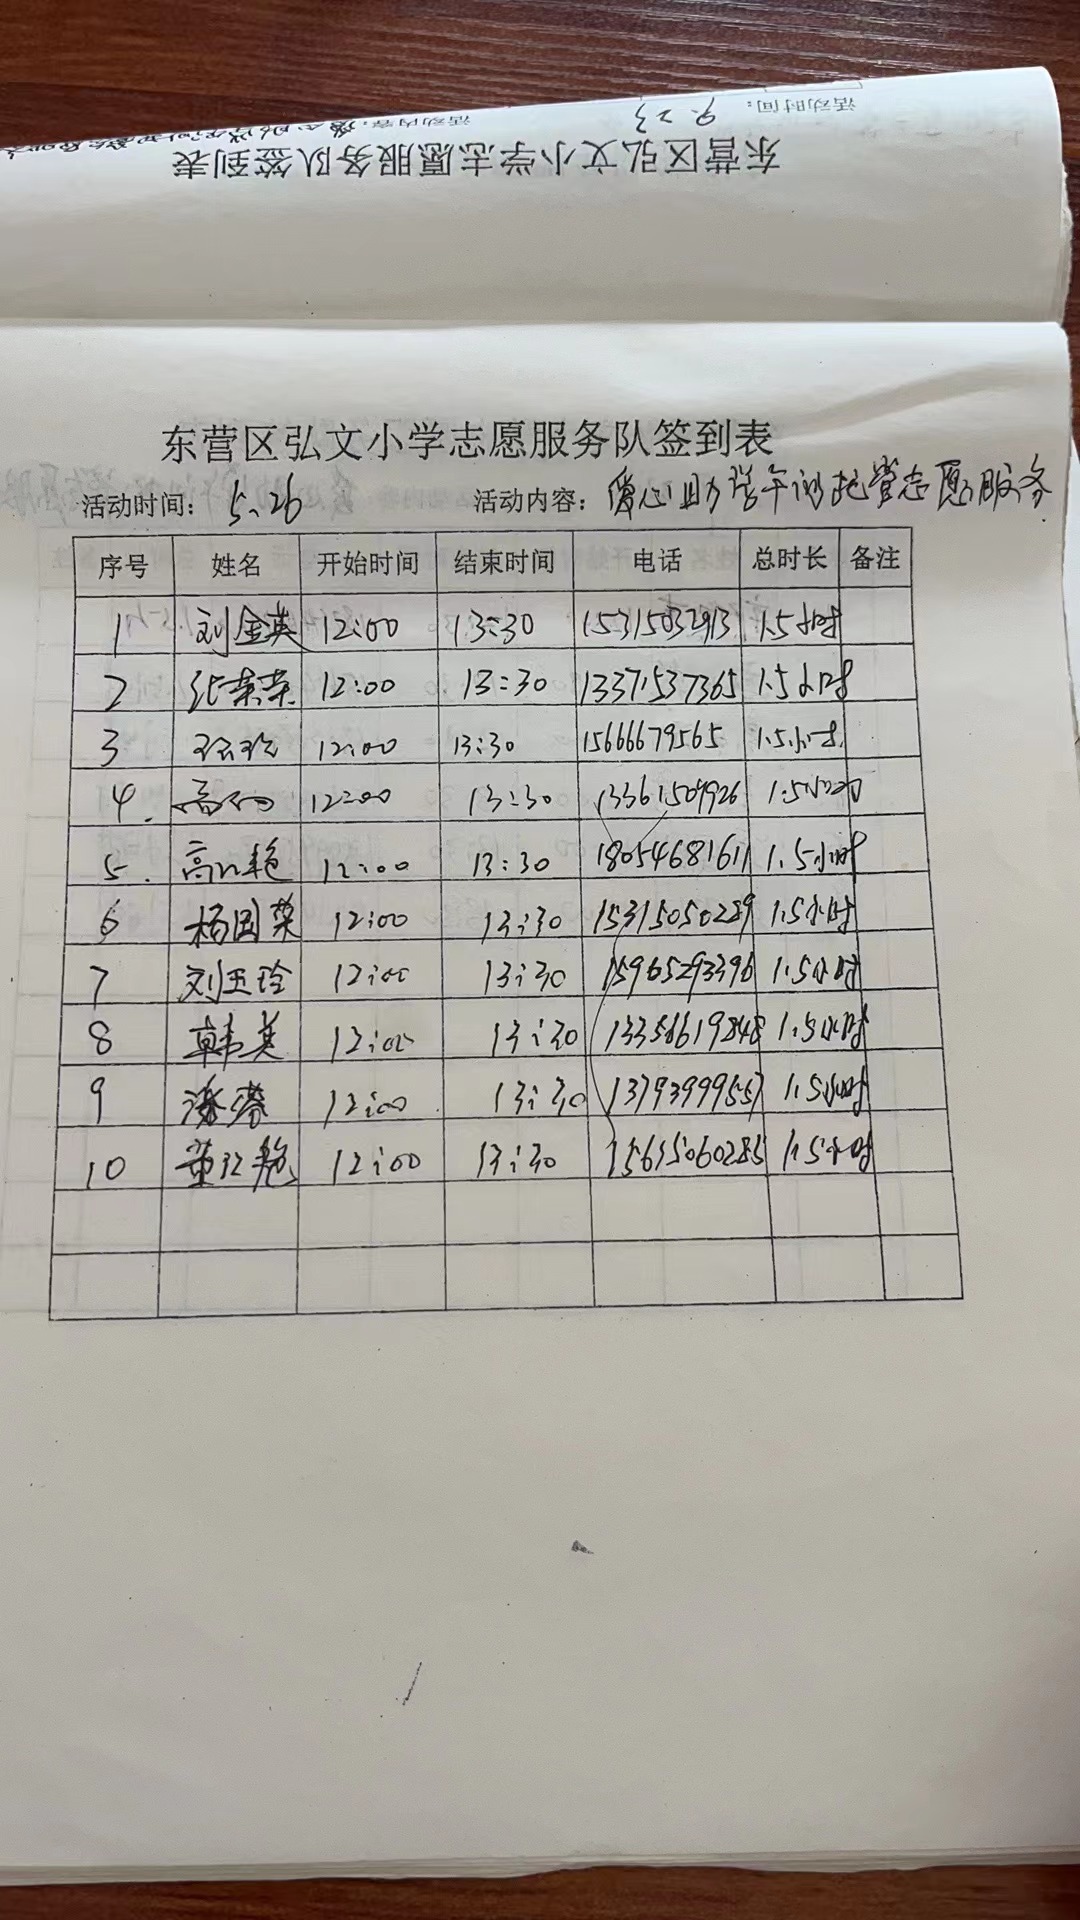 活动时间： 9.23
东营区弘文小学志愿服务队签到表
东营区弘文小学志愿服务队签到表
活动时间： 5.26 活动内容：爱心助学午间托管志愿服务
序号 姓名 开始时间 结束时间 电话 总时长 备注
1 刘金英 12:00 13:30 15315032913 1.5小时
2 张荣荣 12:00 13:30 13371537365 1.5小时
3 12:00 13:30 15666679565 1.5小时
4. 12:00 13:30 13361509926 1.5小时
5. 高红艳 12:00 13:30 18054681611 1.5小时
6 杨国荣 12:00 13:30 15315050289 1.5小时
7 刘玉玲 12:00 13:30 15965293396 1.5小时
8 韩英 12:00 13:30 13356619848 1.5小时
9 12:00 13:30 13793999557 1.5小时
10 董红艳 12:00 13:30 15615060285 1.5小时